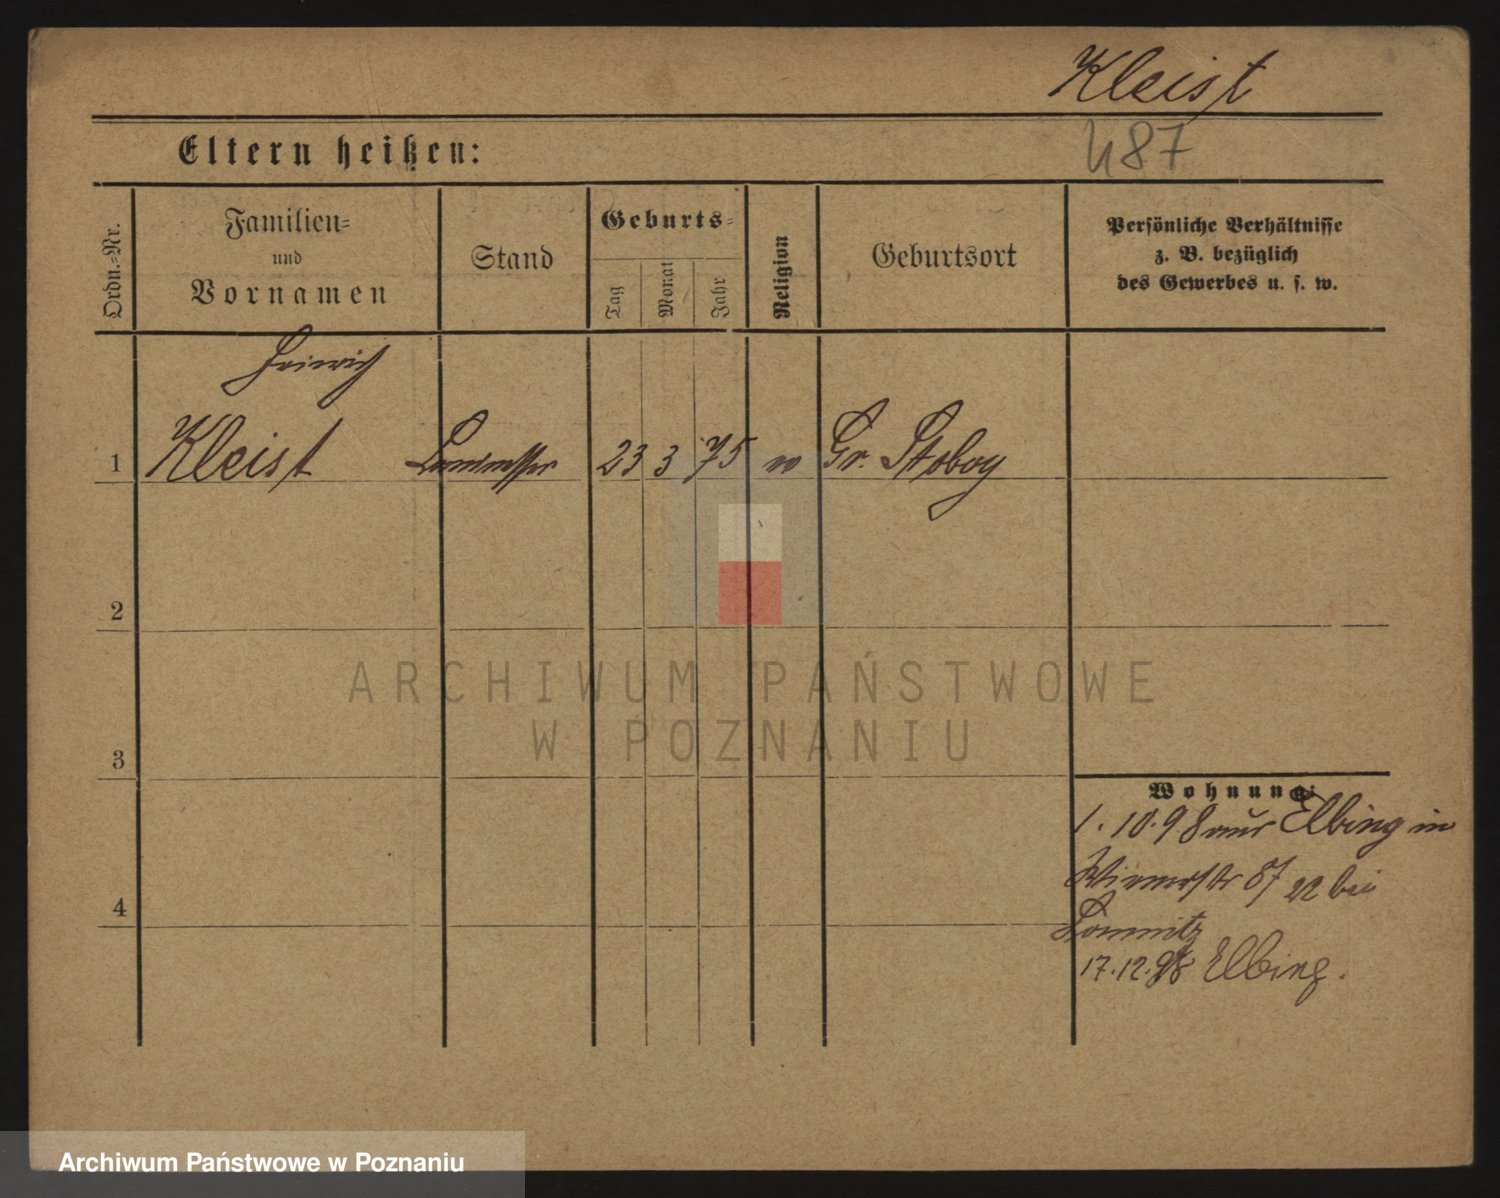 Kleist
487
Eltern heißen:
Ordn.-Nr.
Familien-
und
Vornamen
Stand
Geburts-
Tag
Monat
Jahr
Religion
Geburtsort
Persönliche Verhältnisse
z. B. bezüglich
des Gewerbes u. s. w.
Heinrich
1 Kleist Landmesser 23 3 75 Gr. Stoboy
2
3
4
Wohnung:
1. 10. 98 aus Elbing in
57 22 bei
Lomnitz
17. 12. 98 Elbing.
ARCHIWUM PAŃSTWOWE
W POZNANIU
Archiwum Państwowe w Poznaniu